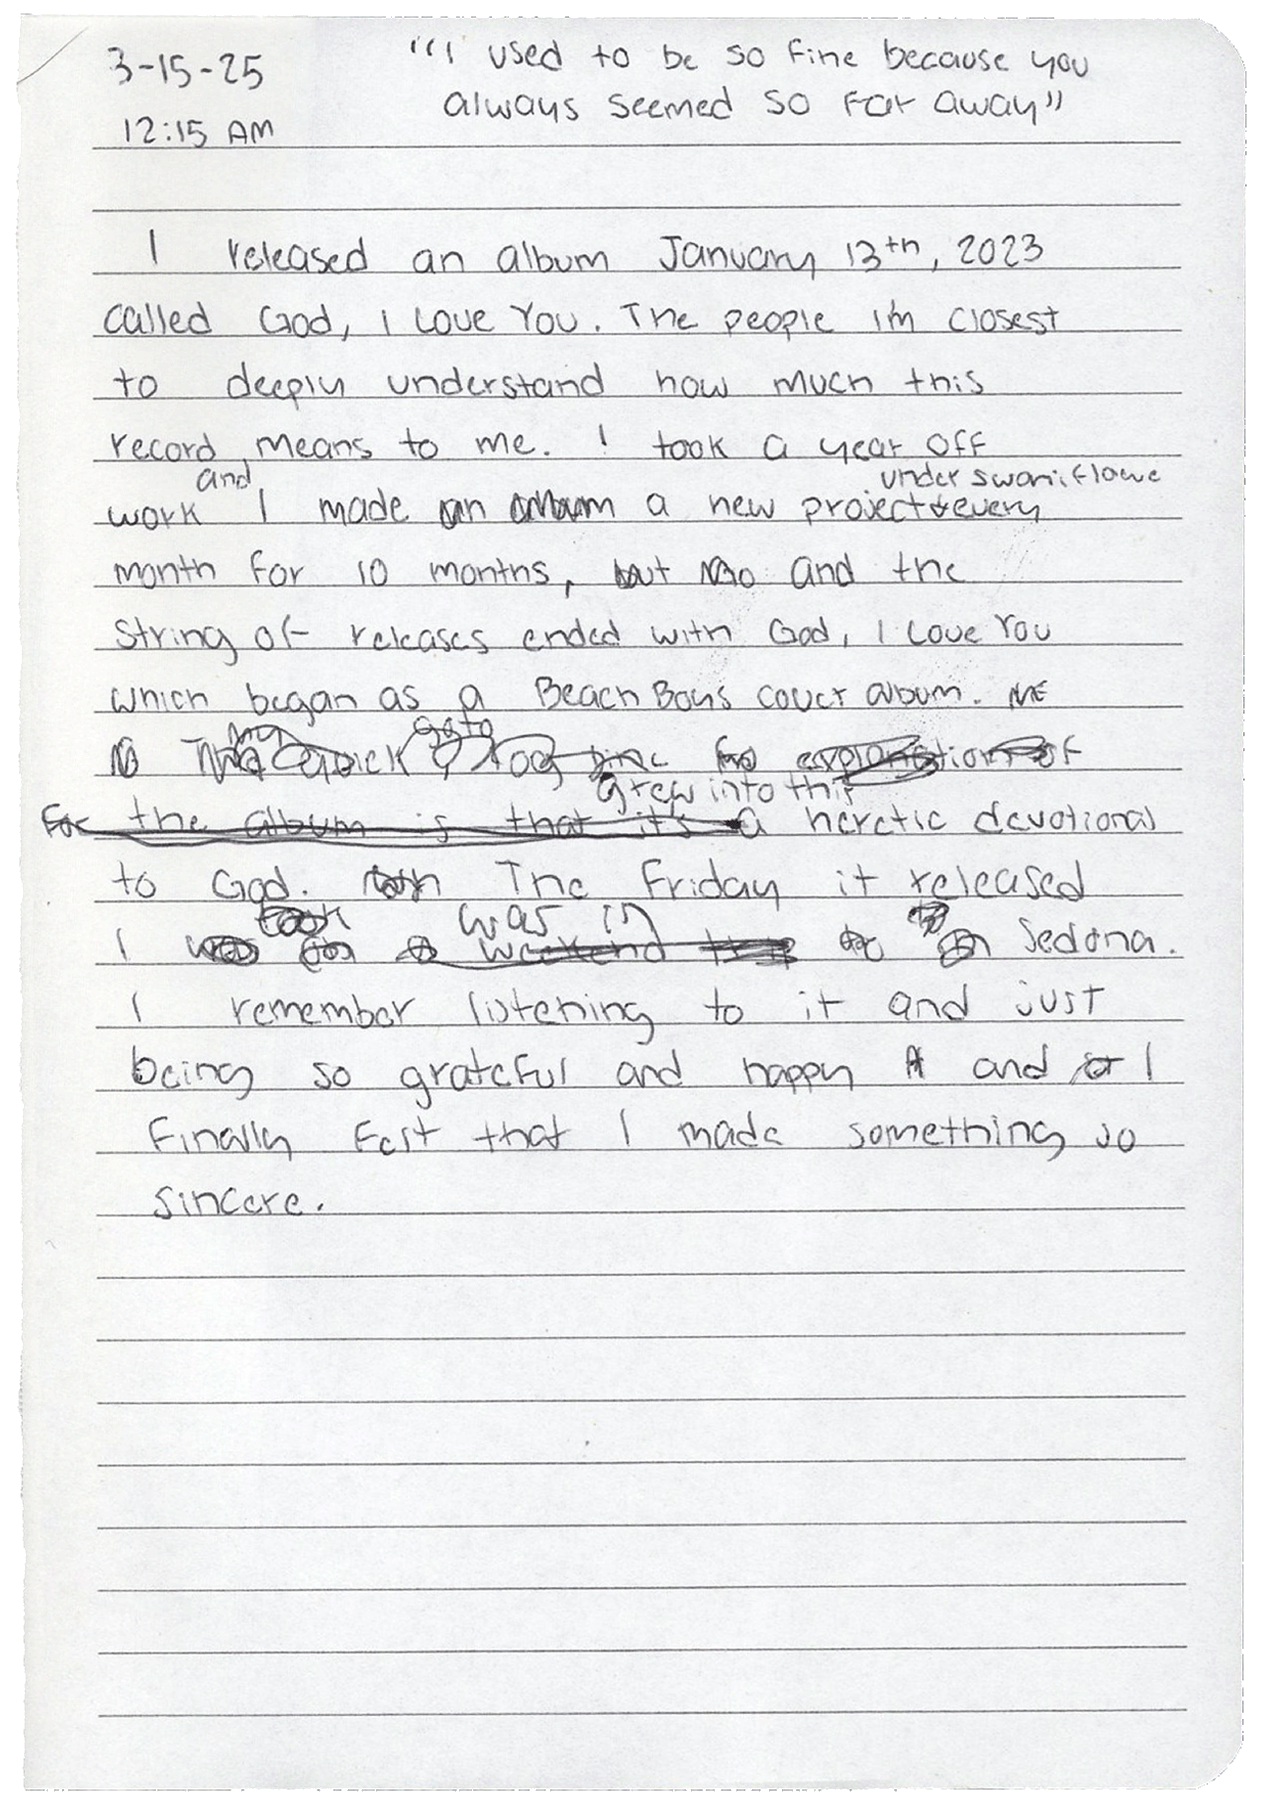 3-15-25
12:15 AM
"I used to be so fine because you
always seemed so far away"
I released an album January 13th, 2023
called God, I Love You. The people I'm closest
to deeply understand how much this
record means to me. I took a year off
and
under swan;flowe
work I made an album a new project every
month for 10 months, but and the
string of releases ended with God, I Love You
which began as a Beach Boys cover album.
my go to
The quick explanation of
grew into this
for the album is that it's a heretic devotional
to God. The Friday it released
took was in
I weekend Sedona.
I remember listening to it and just
being so grateful and happy and I
finally felt that I made something so
sincere.